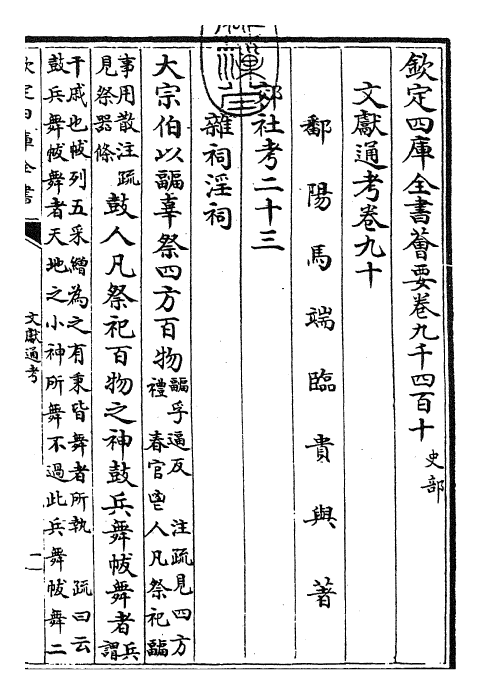 欽定四庫全書薈要卷九千四百十 史部
文獻通考卷九十
鄱陽馬端臨貴與著
郊社考二十三
雜祠淫祠
大宗伯以疈辜祭四方百物疈孚逼反 注疏見四方
禮 春官鬯人凡祭祀疈
事用散注疏
見祭器條鼓人凡祭祀百物之神鼓兵舞帗舞者兵
謂
干戚也帗列五采繒為之有秉皆舞者所執 疏曰云
鼓兵舞帗舞者天地之小神所舞不過此兵舞帗舞二
欽定四庫全書
文獻通考
一